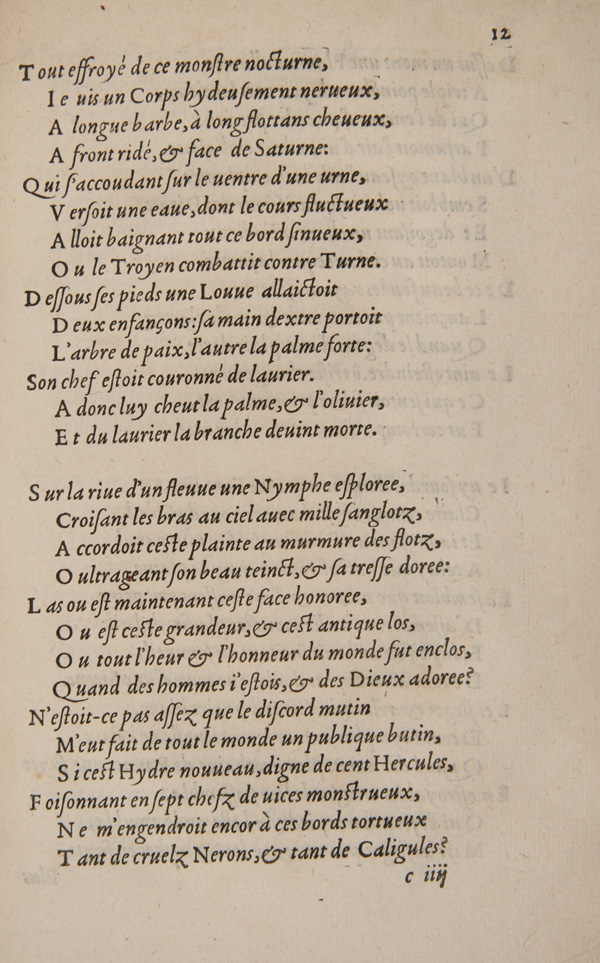 12
Tout effroyé de ce monſtre nocturne,
Ie uis un Corps hydeuſement nerueux,
A longue barbe, à long flottans cheueux,
A front ridé, & face de Saturne:
Qui ſ'accoudant ſur le uentre d'une urne,
Verſoit une eaue, dont le cours fluctueux
Alloit baignant tout ce bord ſinueux,
Ou le Troyen combattit contre Turne.
Deſſous ſes pieds une Louue allaictoit
Deux enfançons: ſa main dextre portoit
L'arbre de paix, l'autre la palme forte:
Son chef eſtoit couronné de laurier.
Adonc luy cheut la palme, & l'oliuier,
Et du laurier la branche deuint morte.
Sur la riue d'un fleuue une Nymphe eſploree,
Croiſant les bras au ciel auec mille ſanglotz,
Accordoit ceſte plainte au murmure des flotz,
Oultrageant ſon beau teinct, & ſa treſſe doree:
Las ou eſt maintenant ceſte face honoree,
Ou eſt ceſte grandeur, & ceſt antique los,
Ou tout l'heur & l'honneur du monde fut enclos,
Quand des hommes i'eſtois, & des Dieux adoree?
N'eſtoit-ce pas aſſez que le diſcord mutin
M'eut fait de tout le monde un publique butin,
Si ceſt Hydre nouueau, digne de cent Hercules,
Foiſonnant en ſept chefz de uices monſtrueux,
Ne m'engendroit encor à ces bords tortueux
Tant de cruelz Nerons, & tant de Caligules?
c iiij